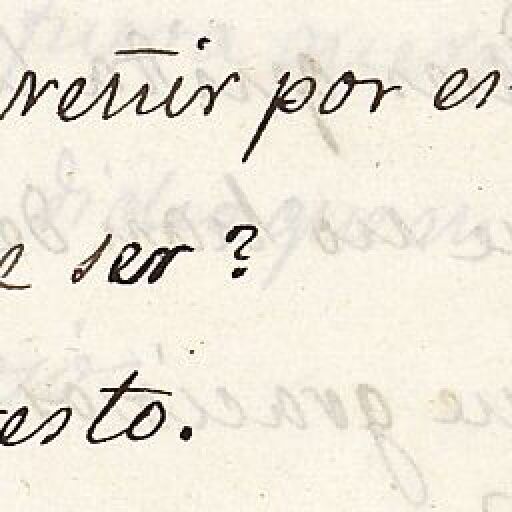 venir por es
ser?
esto.